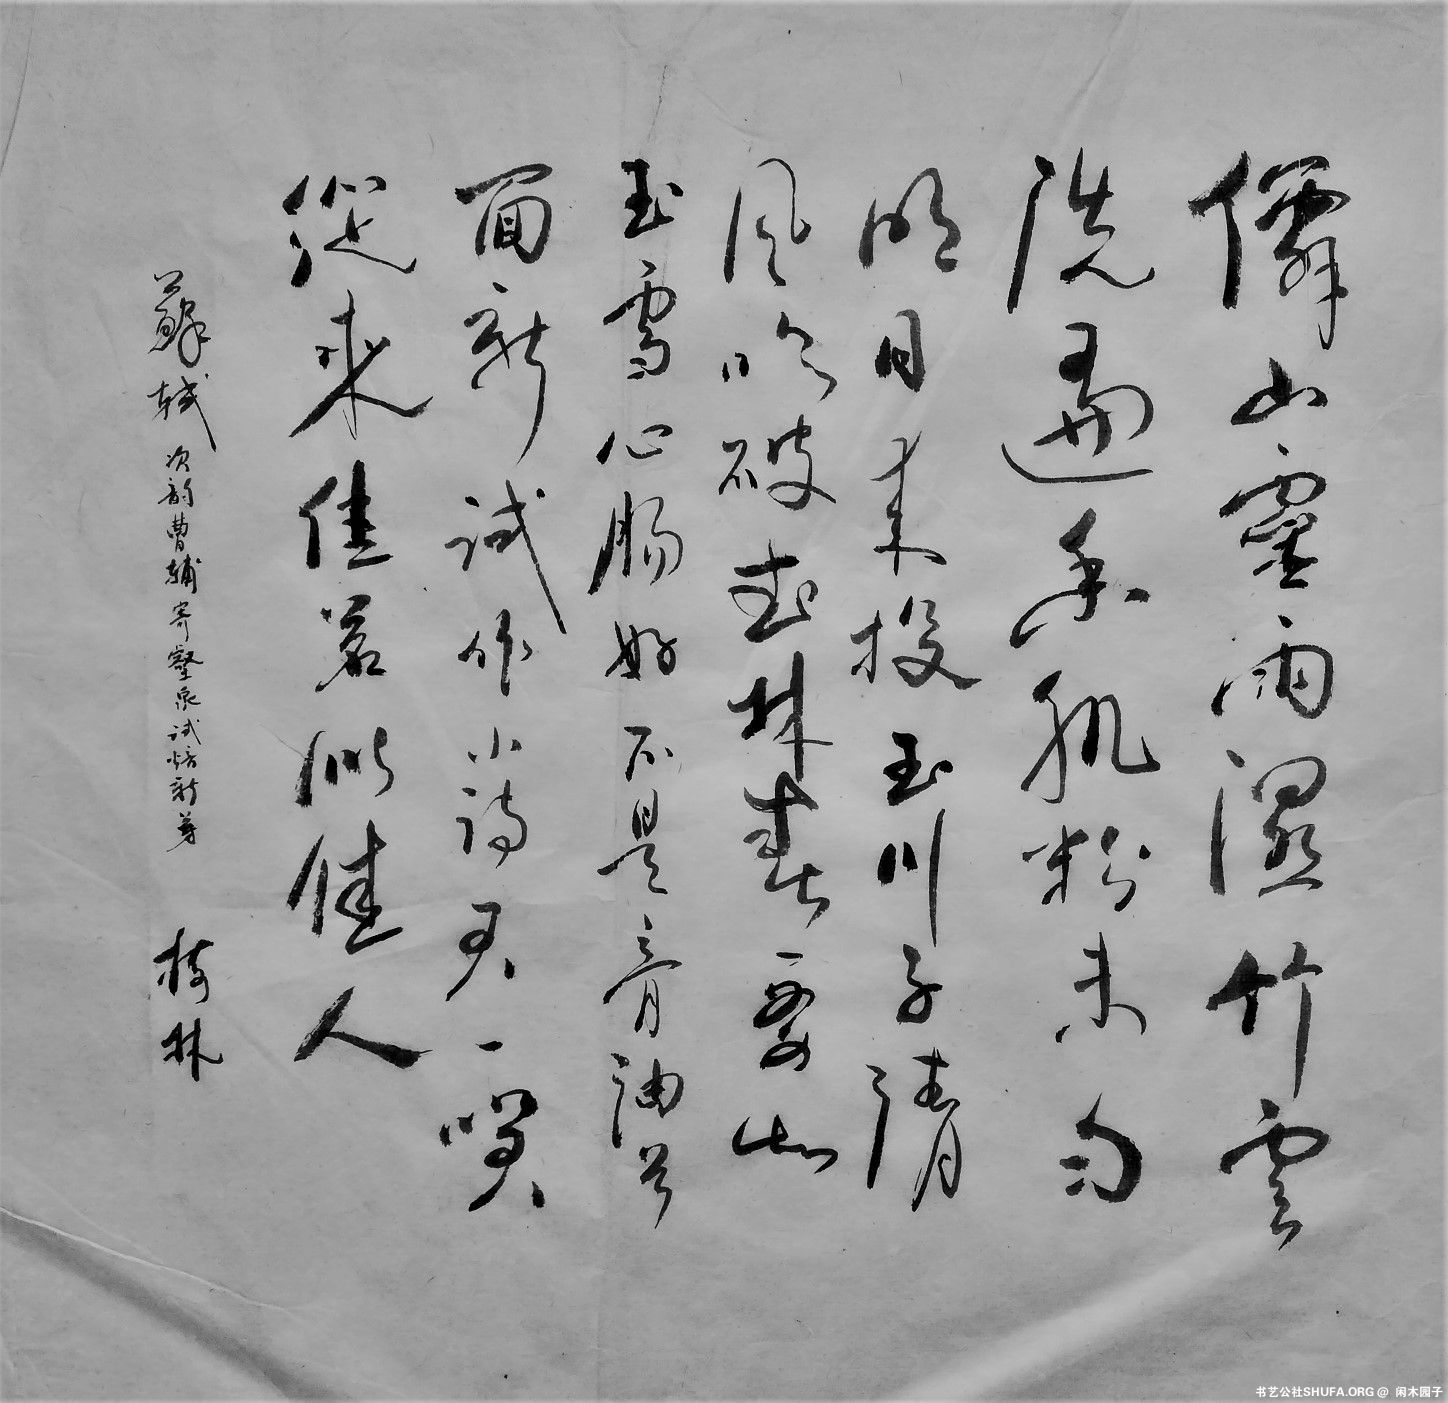 僊山靈雨濕竹雲
洗遍香肌粉未勻
明日来投玉川子清
风吹破武林春要知
玉雪心腸好不是膏油首
面新試作小詩君一咲
從来佳茗似佳人
蘇軾 次韵曹輔寄壑泉试焙新芽 林
书艺公社SHUFA.ORG @ 闲木园子